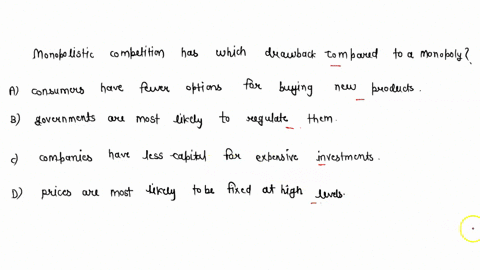 Monopolistic competition has which drawback compared to a monopoly?
A) consumers have fewer options for buying new products.
B) governments are most likely to regulate them.
c) companies have less capital for expensive investments.
D) prices are most likely to be fixed at high levels.